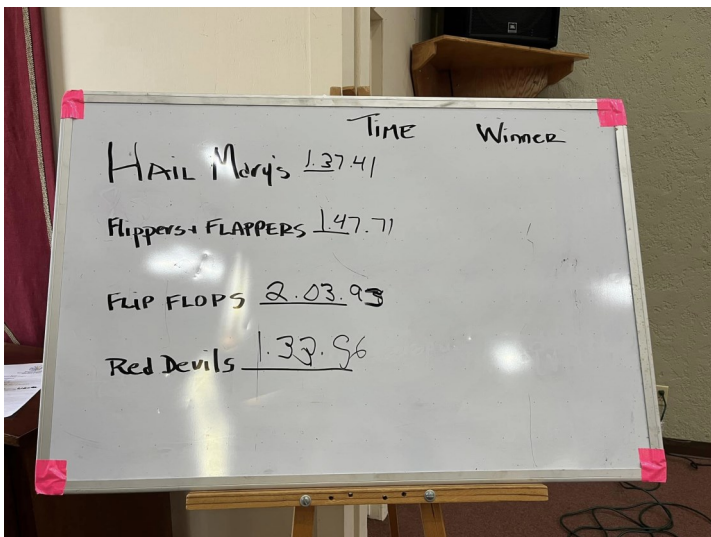 TIME Winner
HAIL Mary's 1.37.41
Flippers + FLAPPERS 1.47.71
FLIP FLOPS 2.03.93
Red Devils 1.33.96